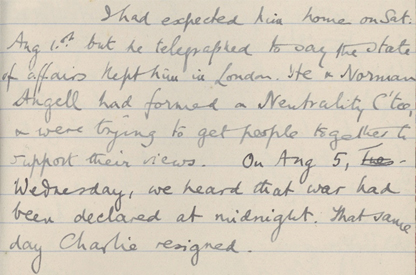 I had expected him home on Sat:
Aug 1.st but he telegraphed to say the state
of affairs kept him in London. He & Norman
Angell had formed a Neutrality C'tee,
& were trying to get people together to
support their views. On Aug 5, Tues-
Wednesday, we heard that war had
been declared at midnight. That same
day Charlie resigned.